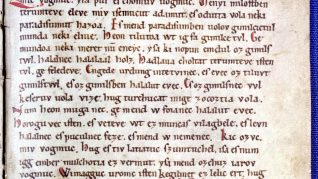 ysa pur es chomuv uogmuc. Menyi milostben
terumteve eleve miv isemucut adamut. es odutta vola neki
paradisumut hazoa. Es mend paradisumben uolov gimilcictul
munda neki elnie. Heon tilutoa wt ig fa gimilce tvl. Ge
mundoa neki meret num eneyc. ysa ki nopun emdul oz gimils
twl. halalnec halalaal holz. Hadlaua choltat terumteve isten
tvl. ge feledeve. Engede urdung intetvinec. es evec oz tiluvt
gimilstwl. es oz gimilsben halalut evec. Es oz gimilsnec vvl
keseruv uola vize. hug turchucat mige zocoztia vola.
Num heon muga nec. ge mend w foianec halalut evec.
Horogu vec isten. es veteve wt ez muncas vilagbele. es levn
halalnec es puculnec feze. es mend w nemenec. Kic ozvc.
miv vogmuc. Hug es tiv latiatuv szumtuchel. isa es num
igg ember mulchotia ez vermut. ysa mend ozchuz iarov
vogmuc. Wimagguc uromv isten kegilmet ez lelic ert. hug